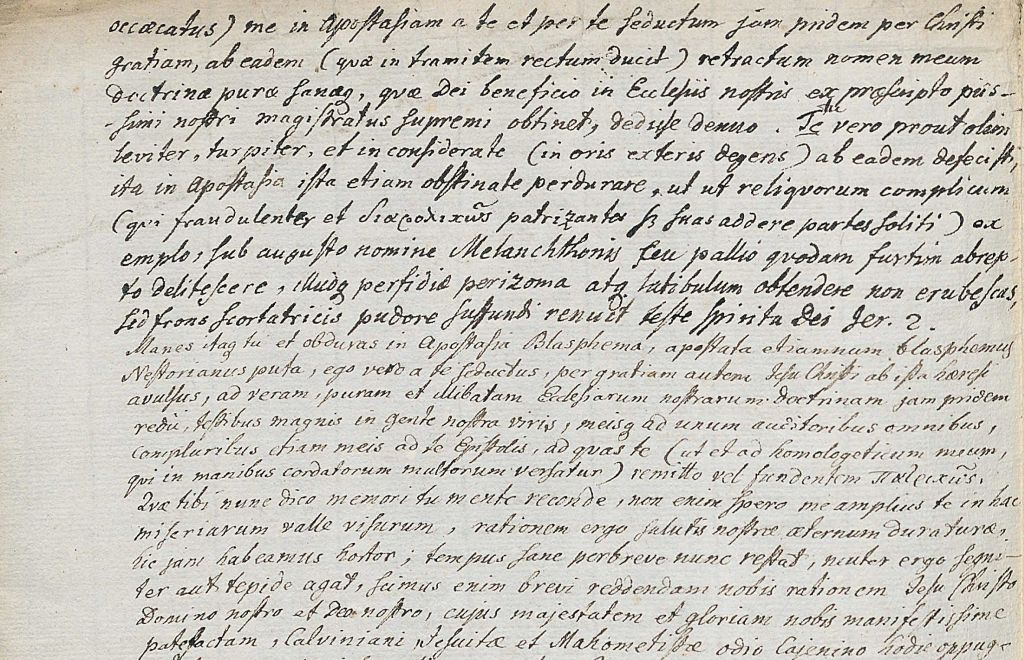 occæcatus) me in Apostasiam a te et per te seductum jam pridem per Christi
gratiam, ab eadem (quæ in tramitem rectum ducit) retractum nomen meum
doctrinæ puræ sanæq, quæ Dei beneficio in Ecclesiis nostris ex præscripto piis-
-simi nostri magistratus supremi obtinet, dedisse denuo. Te vero prout olim
leviter, turpiter, et inconsiderate (in oris exteris degens) ab eadem defecisti,
ita in Apostasia ista etiam obstinate perdurare, ut ut reliquorum complicum
(qui fraudulenter et patrizantes suas addere partes soliti) ex
emplo, sub augusto nomine Melanchthonis ceu pallio quodam furtim abrep-
to delitescere, illudq perfidiæ perizoma atq latibulum obtendere non erubescas,
sed frons scortatricis pudore suffundi renuit teste spiritu Dei Jer. 2.
Manes itaq tu et obduras in Apostasia Blasphema, apostata etiamnum blasphemus
Nestorianus puta, ego vero a te seductus, per gratiam autem Jesu Christi ab ista hæresi
avulsus, ad veram, puram et illibatam Ecclesiarum nostrarum doctrinam jam pridem
redii, testibus magnis in gente nostra viris, meisq ad unum auditoribus omnibus,
compluribus etiam meis ad te Epistolis, ad quas te (ut et ad homologeticum meum,
qui in manibus cordatorum multorum versatur) remitto vel fundentem
Quæ tibi nunc dico memori tu mente reconde, non enim spero me amplius te in hac
miseriarum valle visurum, rationem ergo salutis nostræ æternum duraturæ,
hic jam habeamus hortor; tempus sane perbreve nunc restat, neuter ergo segni-
ter aut tepide agat, scimus enim brevi reddendam nobis rationem Jesu Christo
Domino nostro et Deo nostro, cujus majestatem et gloriam nobis manifestissime
patefactam, Calviniani, Jesuitæ et Mahometistæ odio Cajenino hodie oppug-